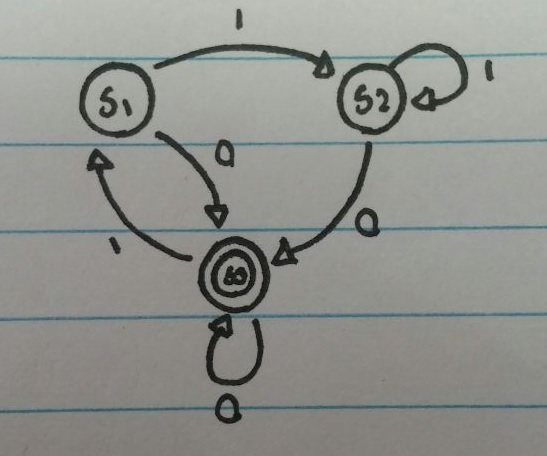 1
S1
S2
1
0
1
0
S0
0